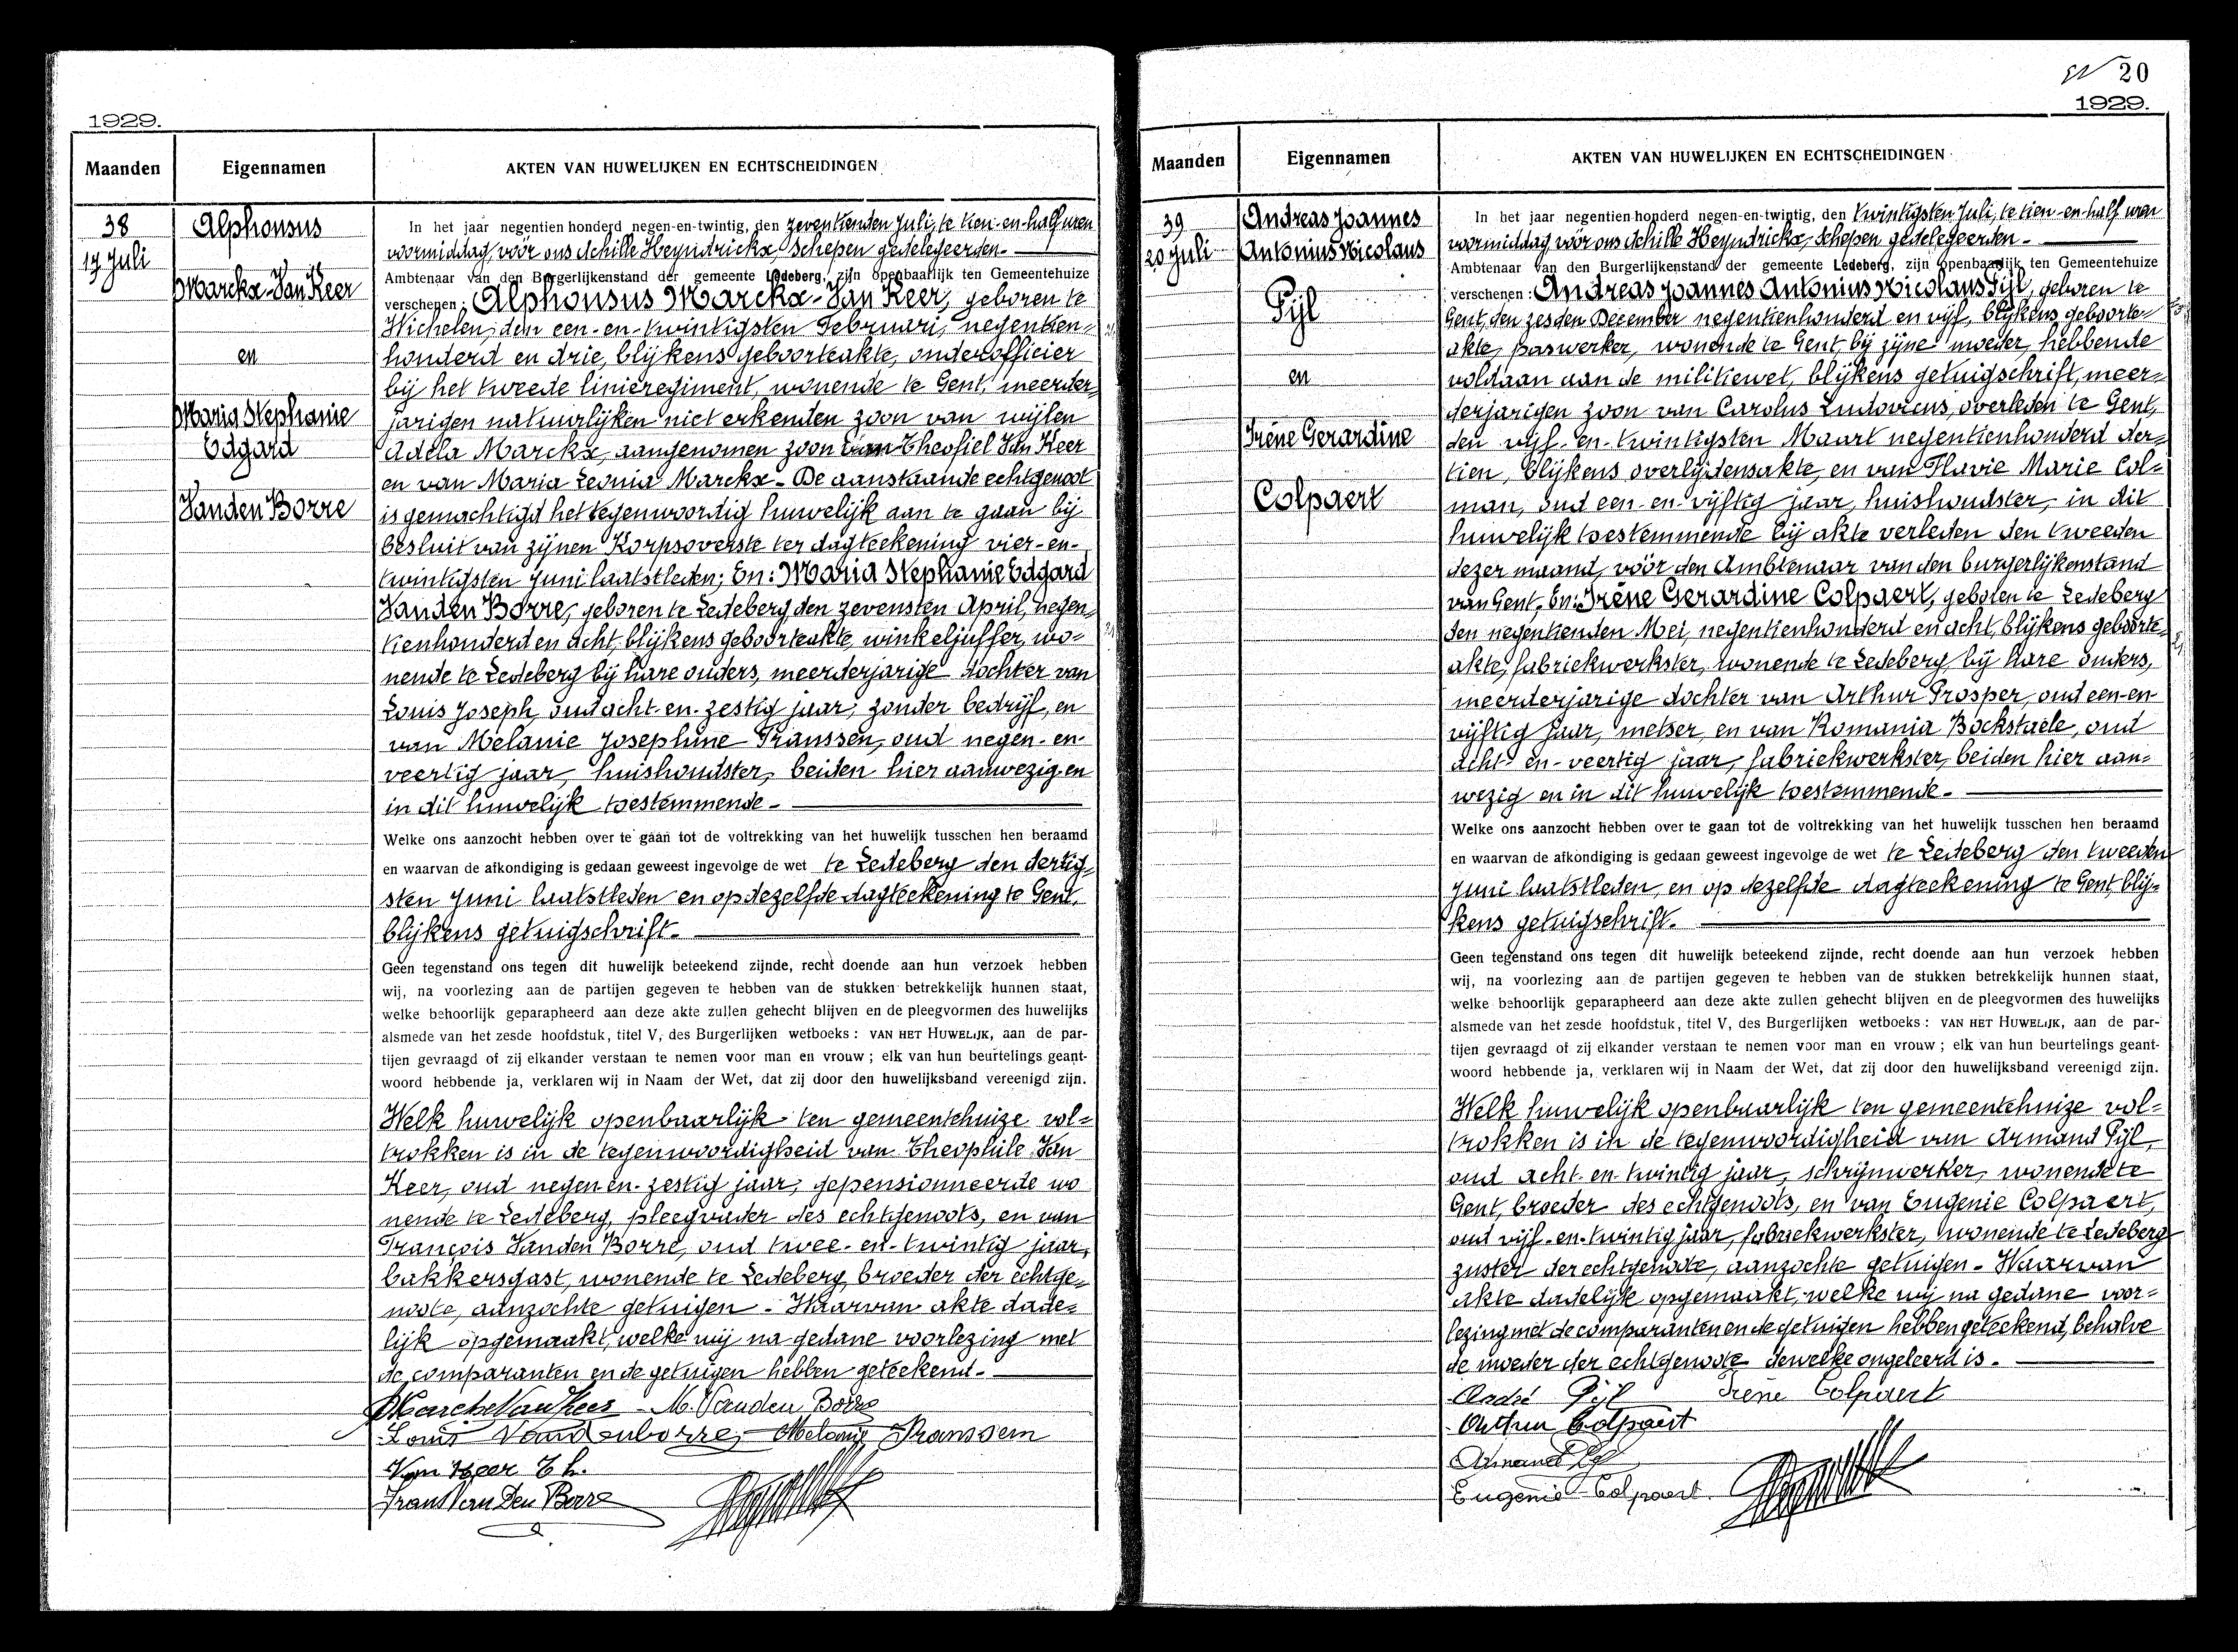 1929.
Maanden
Eigennamen
AKTEN VAN HUWELIJKEN EN ECHTSCHEIDINGEN
38
17 Juli
Alphonsus
Marckx-Van Keer
en
Maria Stephanie
Edgard
Vanden Borre
In het jaar negentien honderd negen-en-twintig, den zeventienden Juli, te tien-en-half uren
voormiddag, vóór ons Achille Heyndrickx, Schepen gedelegeerden.
Ambtenaar van den Burgerlijkenstand der gemeente Ledeberg, zijn openbaarlijk ten Gemeentehuize
verschenen : Alphonsus Marckx-Van Keer, geboren te
Wichelen, den een-en-twintigsten Februari, negentien=
honderd en drie, blijkens geboorteakte, onderofficier
bij het tweede linieregiment, wonende te Gent, meerder=
jarigen natuurlijken niet erkenden zoon van wijlen
Adela Marckx, aangenomen zoon van Theofiel Van Keer
en van Maria Leonia Marckx - De aanstaande echtgenoot
is gemachtigd het tegenwoordig huwelijk aan te gaan bij
besluit van zijnen Korpsoverste ter dagteekening vier-en-
twintigsten Juni laatstleden; En: Maria Stephanie Edgard
Vanden Borre, geboren te Ledeberg, den zevensten April, negen=
tienhonderd en acht, blijkens geboorteakte, winkeljuffer, wo=
nende te Ledeberg bij hare ouders, meerderjarige dochter van
Louis Joseph, oud acht-en-zestig jaar, zonder bedrijf, en
van Melanie Josephine Franssen, oud negen-en-
veertig jaar, huishoudster, beiden hier aanwezig en
in dit huwelijk toestemmende.
Welke ons aanzocht hebben over te gaan tot de voltrekking van het huwelijk tusschen hen beraamd
en waarvan de afkondiging is gedaan geweest ingevolge de wet te Ledeberg den dertig=
sten Juni laatstleden en op dezelfde dagteekening te Gent,
blijkens getuigschrift.
Geen tegenstand ons tegen dit huwelijk beteekend zijnde, recht doende aan hun verzoek hebben
wij, na voorlezing aan de partijen gegeven te hebben van de stukken betrekkelijk hunnen staat,
welke behoorlijk geparapheerd aan deze akte zullen gehecht blijven en de pleegvormen des huwelijks
alsmede van het zesde hoofdstuk, titel V, des Burgerlijken wetboeks : VAN HET HUWELIJK, aan de par-
tijen gevraagd of zij elkander verstaan te nemen voor man en vrouw ; elk van hun beurtelings geant-
woord hebbende ja, verklaren wij in Naam der Wet, dat zij door den huwelijksband vereenigd zijn.
Welk huwelijk openbaarlijk ten gemeentehuize vol=
trokken is in de tegenwoordigheid van Theophile Van
Keer, oud negen-en-zestig jaar, gepensionneerde wo
nende te Ledeberg, pleegvader des echtgenoots, en van
François Vanden Borre, oud twee-en-twintig jaar,
bakkersgast, wonende te Ledeberg, broeder der echtge=
noote, aanzochte getuigen. Waarvan akte dade=
lijk opgemaakt, welke wij na gedane voorlezing met
de comparanten en de getuigen hebben geteekend.
Marckx Van Keer M. Vanden Borre
Louis Vandenborre, Melanie Franssem
Van Keer Th.
Frans Van Den Borre
20
1929.
Maanden
Eigennamen
AKTEN VAN HUWELIJKEN EN ECHTSCHEIDINGEN
39
20 Juli
Andreas Joannes
Antonius Nicolaus
Pijl
en
Irène Gerardine
Colpaert
In het jaar negentien honderd negen-en-twintig, den twintigsten Juli, te tien-en-half uren
voormiddag, vóór ons Achille Heyndrickx, Schepen gedelegeerden.
Ambtenaar van den Burgerlijkenstand der gemeente Ledeberg, zijn openbaarlijk ten Gemeentehuize
verschenen : Andreas Joannes Antonius Nicolaus Pijl, geboren te
Gent, den zesden December negentienhonderd en vijf, blijkens geboorte=
akte, paswerker, wonende te Gent, bij zijne moeder, hebbende
voldaan aan de militiewet, blijkens getuigschrift, meer=
derjarigen zoon van Carolus Ludovicus, overleden te Gent,
den vijf-en-twintigsten Maart negentienhonderd der=
tien, blijkens overlijdensakte, en van Flavie Marie Col=
man, oud een-en-vijftig jaar, huishoudster, in dit
huwelijk toestemmende bij akte verleden den tweeden
dezer maand, vóór den Ambtenaar van den burgerlijkenstand
van Gent. En: Irène Gerardine Colpaert, geboren te Ledeberg
den negentienden Mei, negentienhonderd en acht, blijkens geboorte=
akte, fabriekwerkster, wonende te Ledeberg, bij hare ouders,
meerderjarige dochter van Arthur Prosper, oud een-en-
vijftig jaar, metser, en van Romania Bockstaele, oud
acht-en-veertig jaar, fabriekwerkster, beiden hier aan=
wezig en in dit huwelijk toestemmende.
Welke ons aanzocht hebben over te gaan tot de voltrekking van het huwelijk tusschen hen beraamd
en waarvan de afkondiging is gedaan geweest ingevolge de wet te Ledeberg den tweeden
Juni laatstleden, en op dezelfde dagteekening te Gent, blij=
kens getuigschrift.
Geen tegenstand ons tegen dit huwelijk beteekend zijnde, recht doende aan hun verzoek hebben
wij, na voorlezing aan de partijen gegeven te hebben van de stukken betrekkelijk hunnen staat,
welke behoorlijk geparapheerd aan deze akte zullen gehecht blijven en de pleegvormen des huwelijks
alsmede van het zesde hoofdstuk, titel V, des Burgerlijken wetboeks : VAN HET HUWELIJK, aan de par-
tijen gevraagd of zij elkander verstaan te nemen voor man en vrouw ; elk van hun beurtelings geant-
woord hebbende ja, verklaren wij in Naam der Wet, dat zij door den huwelijksband vereenigd zijn.
Welk huwelijk openbaarlijk ten gemeentehuize vol=
trokken is in de tegenwoordigheid van Armand Pijl,
oud acht-en-twintig jaar, schrijnwerker, wonende te
Gent, broeder des echtgenoots, en van Eugenie Colpaert,
oud vijf-en-twintig jaar, fabriekwerkster, wonende te Ledeberg
zuster der echtgenoote, aanzochte getuigen. Waarvan
akte dadelijk opgemaakt, welke wij na gedane voor=
lezing met de comparanten en de getuigen hebben geteekend, behalve
de moeder der echtgenoote dewelke ongeleerd is.
André Pijl Irène Colpaert
Arthur Colpaert
Armand Pijl
Eugenie Colpaert